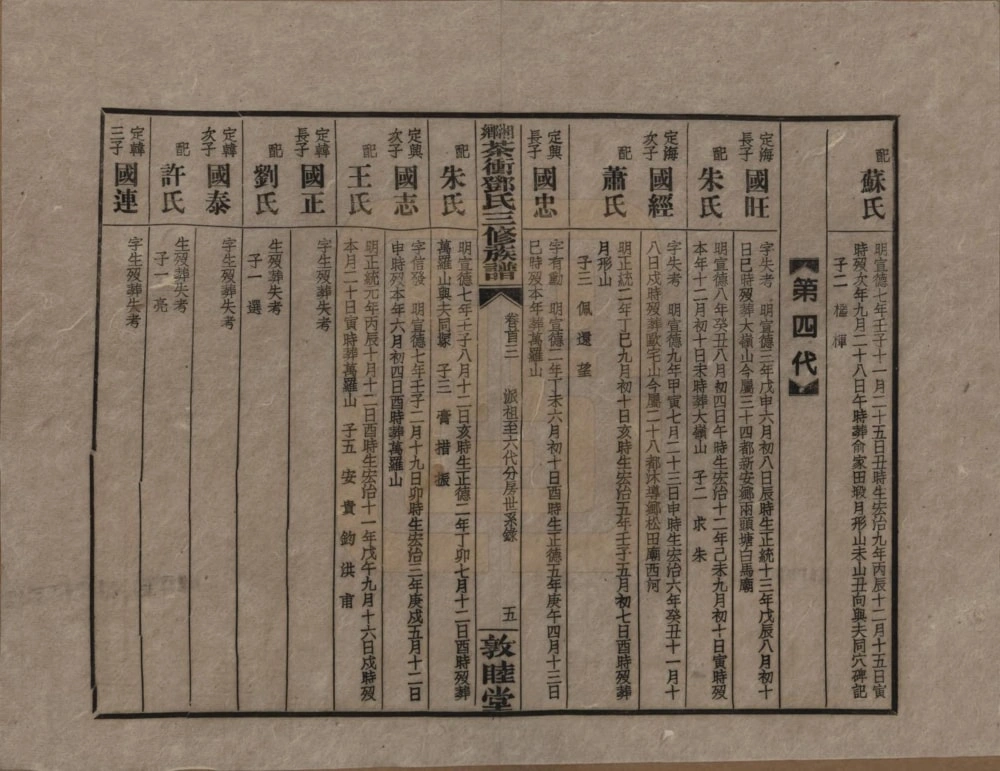 配
蘇氏
明宣德七年壬子十一月二十五日丑時生宏治九年丙辰十二月十五日寅
時歿次年九月二十八日午時葬俞家田塅月形山未山丑向與夫同穴碑記
子二 㮣 樿
第四代
定海
長子
國旺
字失考 明宣德三年戊申六月初八日辰時生正統十三年戊辰八月初十
日巳時歿葬大嶺山今屬三十四都新安鄉兩頭塘白馬廟
配
朱氏
明宣德八年癸丑八月初四日午時生宏治十二年己未九月初十日寅時歿
本年十二月初十日未時葬大嶺山 子二 求 朱
定海
次子
國經
字失考 明宣德九年甲寅七月二十三日申時生宏治六年癸丑十一月十
八日戌時歿葬歐宅山今屬二十八都沐導鄉松田廟西河
配
蕭氏
明正統二年丁巳九月初十日亥時生宏治五年壬子五月初七日酉時歿葬
月形山
子三 佩 還 望
定興
長子
國忠
字有勳 明宣德二年丁未六月初十日酉時生正德五年庚午四月十三日
巳時歿本年葬萬羅山
湘鄉茶衝鄧氏三修族譜
卷首三
派祖至六代分房世系錄
五
敦睦堂
配
朱氏
明宣德七年壬子八月十二日亥時生正德二年丁卯七月十二日酉時歿葬
萬羅山與夫同塚 子三 賫 措 振
定興
次子
國志
字信發 明宣德七年壬子二月十九日卯時生宏治三年庚戌五月十二日
申時歿本年六月初四日酉時葬萬羅山
配
王氏
明正統元年丙辰十月十二日酉時生宏治十一年戊午九月十六日戌時歿
本月二十日寅時葬萬羅山 子五 安 貴 鈞 洪 甫
定韓
長子
國正
字生歿葬失考
配
劉氏
生歿葬失考
子一 選
定韓
次子
國泰
字生歿葬失考
配
許氏
生歿葬失考
子一 亮
定韓
三子
國連
字生歿葬失考